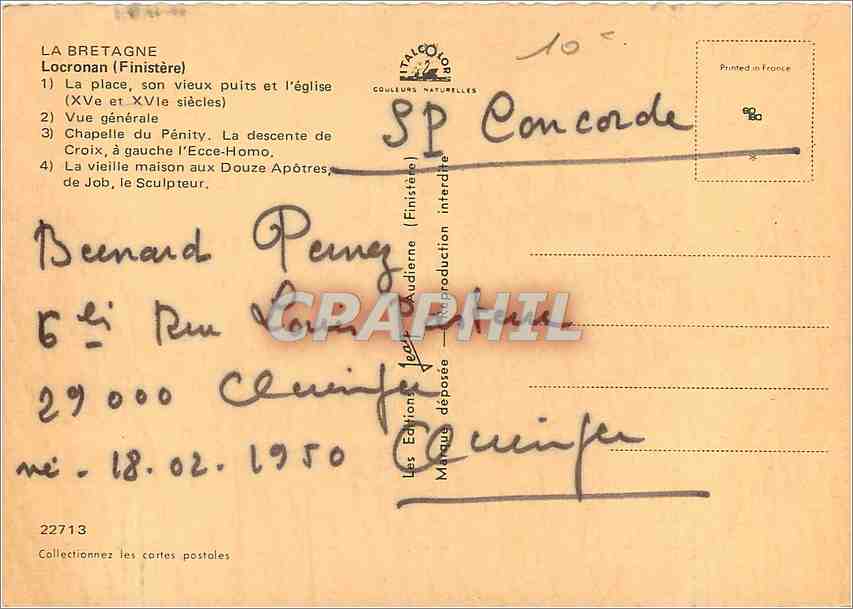 LA BRETAGNE
Locronan (Finistère)
1) La place, son vieux puits et l'église
(XVe et XVIe siècles)
2) Vue générale
3) Chapelle du Pénity. La descente de
Croix, à gauche l'Ecce-Homo.
4) La vieille maison aux Douze Apôtres,
de Job, le Sculpteur.
ITALCOLOR
COULEURS NATURELLES
10 c
Printed in France
SP Concorde
Les Editions Jean Audierne (Finistère)
Marque déposée — Reproduction interdite
Bernard
6 Rue Louis Pasteur
29000 Quimper
né - 18.02.1950 Quimper
CPARPHIL
22713
Collectionnez les cartes postales